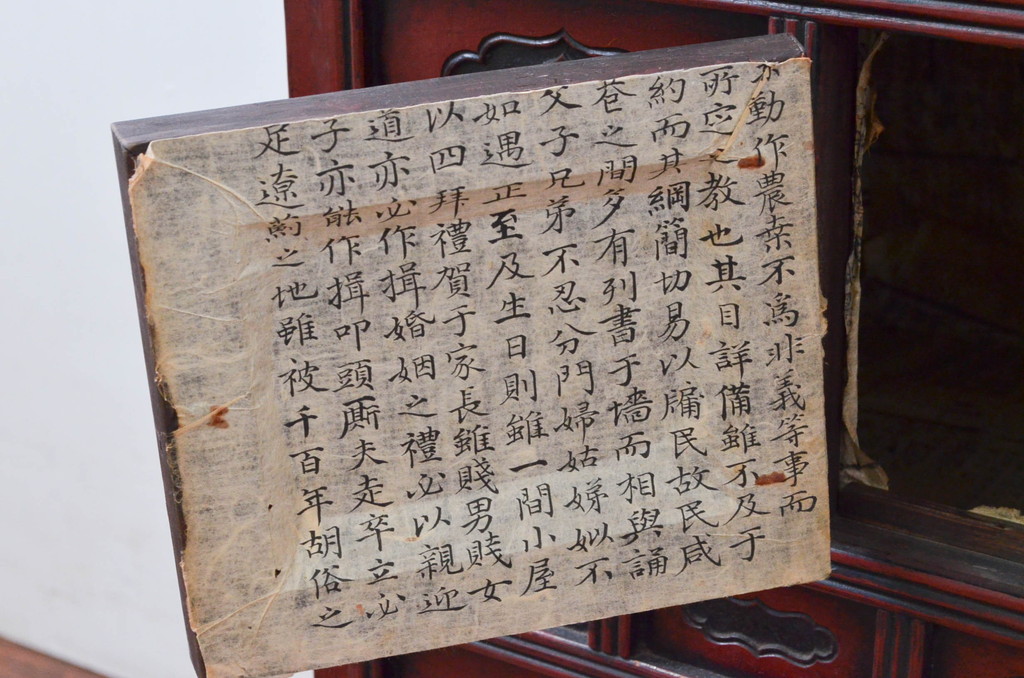 動作農桒不為非義等事而
所定之教也其目詳備雖不及于
約而其綱簡切易以牖民故民咸
巷之間多有列書于墻而相與誦
父子兄弟不忍分門婦姑娣姒不
如遇正至及生日則雖一間小屋
以四拜禮賀于家長雖賤男賤女
道亦必作揖婚姻之禮必以親迎
子亦能作揖叩頭厮夫走卒立必
足遼薊之地雖被千百年胡俗之